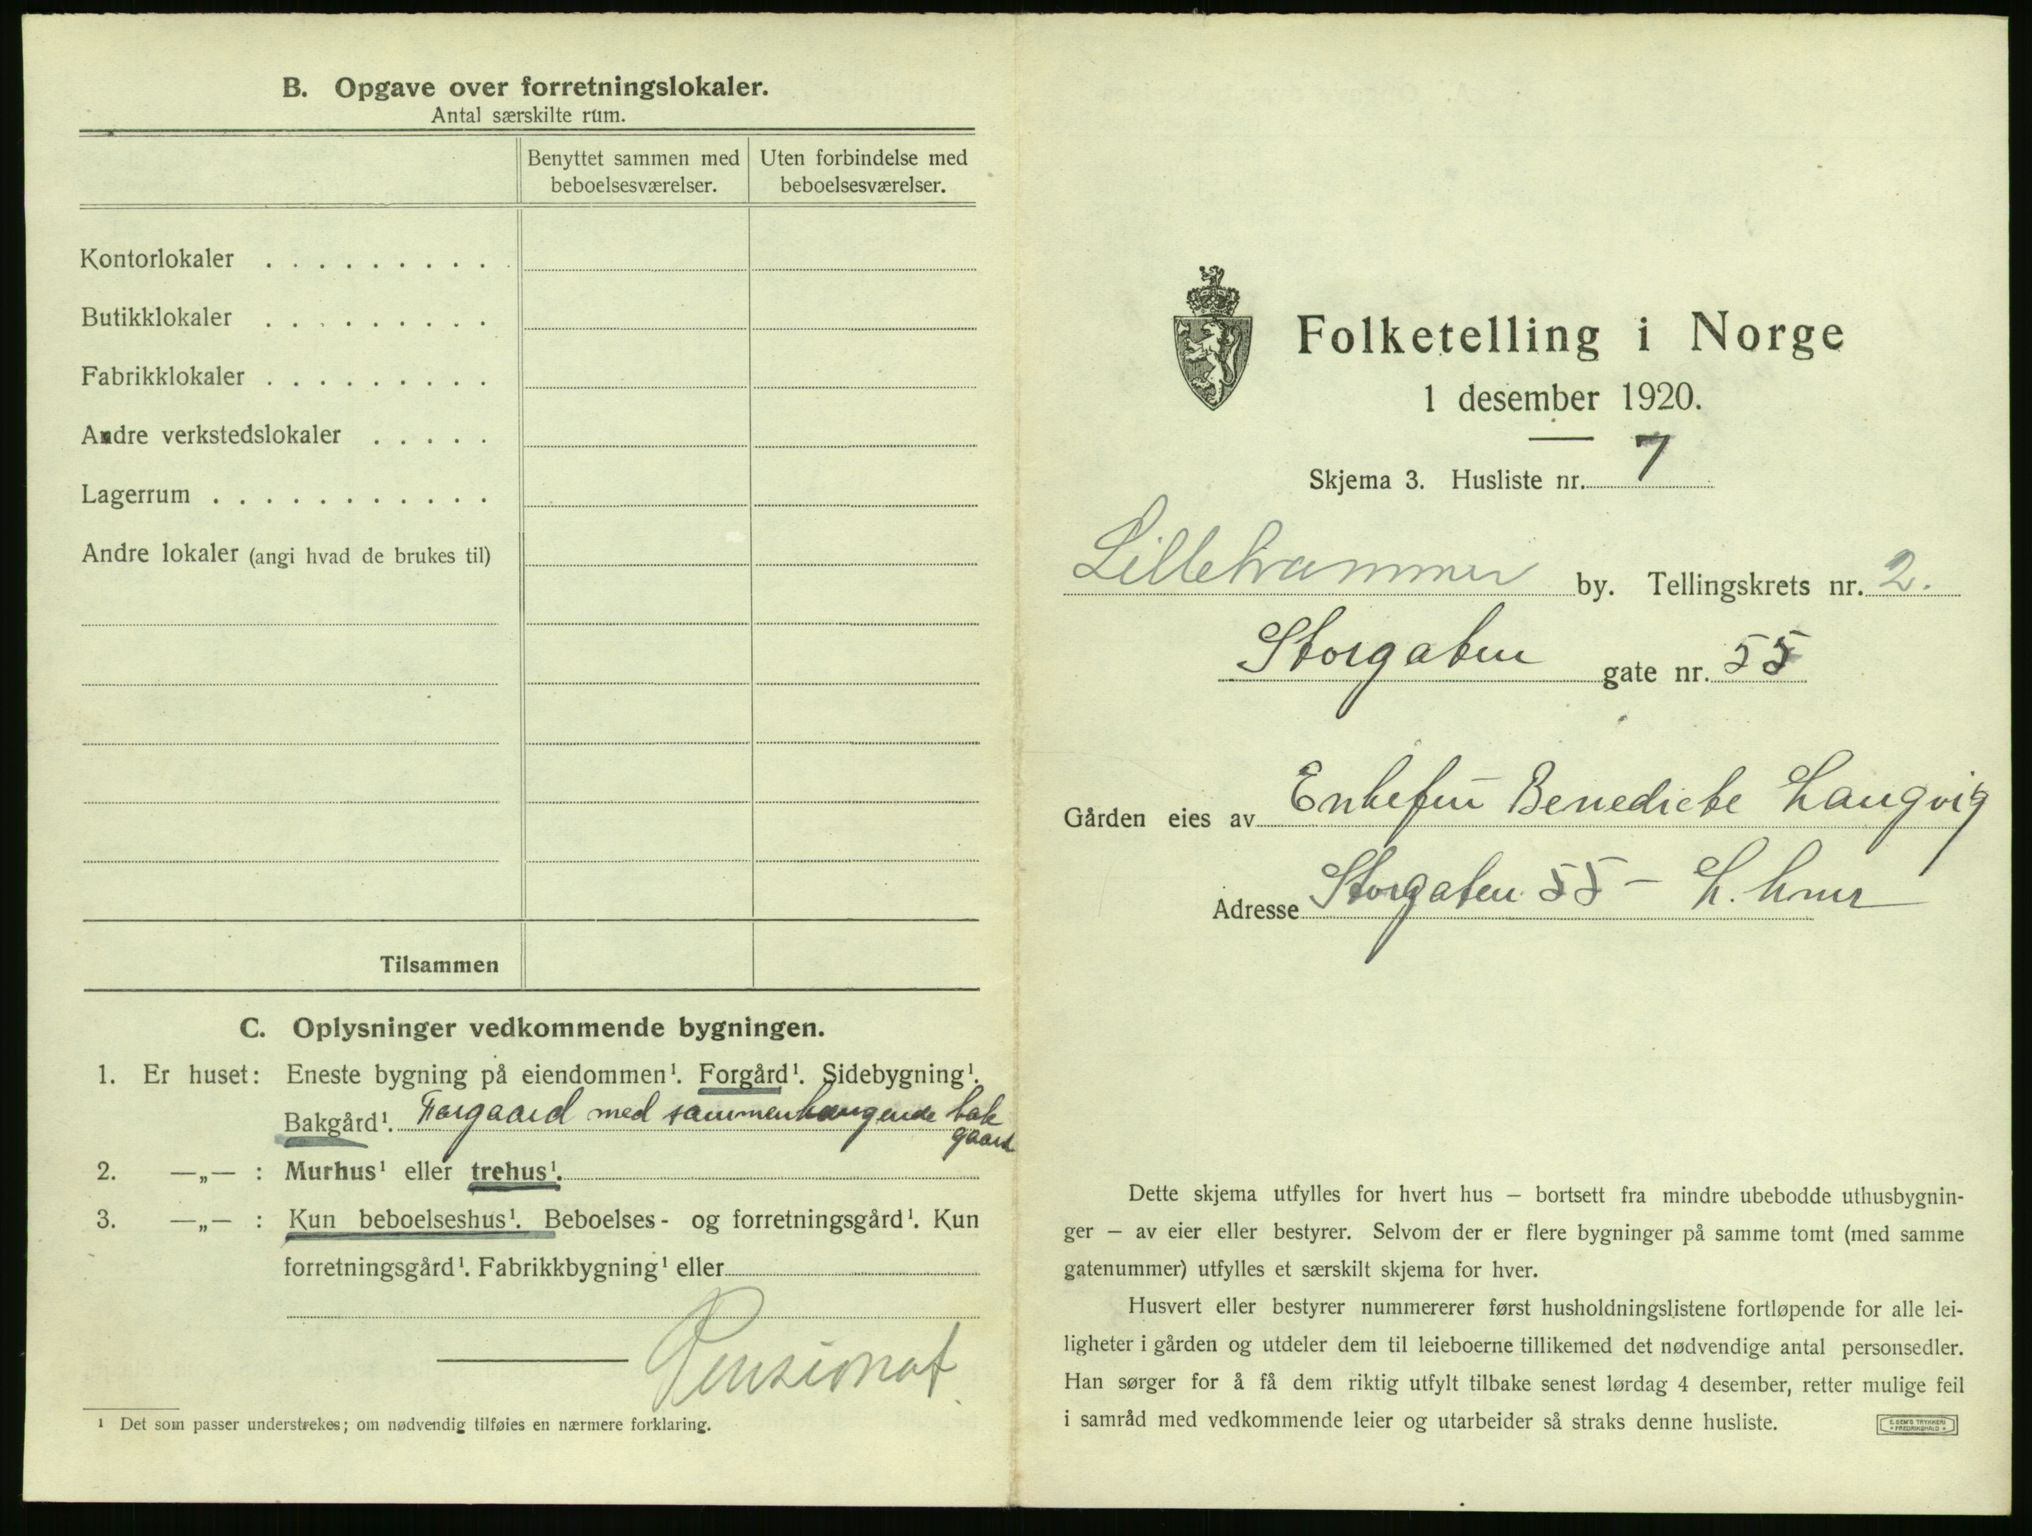 B. Opgave over forretningslokaler.
Antal særskilte rum.
Benyttet sammen med
beboelsesværelser.
Uten forbindelse med
beboelsesværelser.
Kontorlokaler . . . . . . . . . .
Butikklokaler . . . . . . . . .
Fabrikklokaler . . . . . . . . .
Andre verkstedslokaler . . . . .
Lagerrum . . . . . . . . . . .
Andre lokaler (angi hvad de brukes til)
Tilsammen
C. Oplysninger vedkommende bygningen.
1. Er huset: Eneste bygning på eiendommen¹. Forgård¹. Sidebygning¹.
Bakgård¹. Forgaard med sammenhængende bak
gaard
2. —„— : Murhus¹ eller trehus¹.
3. —„— : Kun beboelseshus¹. Beboelses- og forretningsgård¹. Kun
forretningsgård¹. Fabrikkbygning¹ eller
Pensionat.
¹ Det som passer understrekes; om nødvendig tilføies en nærmere forklaring.
Folketelling i Norge
1 desember 1920.
Skjema 3. Husliste nr. 7
Lillehammer by. Tellingskrets nr. 2.
Storgaten gate nr. 55
Gården eies av Enkefru Benedicte Langvig
Adresse Storgaten 55 – L. hmr
Dette skjema utfylles for hvert hus – bortsett fra mindre ubebodde uthusbygnin-
ger – av eier eller bestyrer. Selvom der er flere bygninger på samme tomt (med samme
gatenummer) utfylles et særskilt skjema for hver.
Husvert eller bestyrer nummererer først husholdningslistene fortløpende for alle lei-
ligheter i gården og utdeler dem til leieboerne tillikemed det nødvendige antal personsedler.
Han sørger for å få dem riktig utfylt tilbake senest lørdag 4 desember, retter mulige feil
i samråd med vedkommende leier og utarbeider så straks denne husliste.
E. SEM'S TRYKKERI
• FREDRIKSHALD •